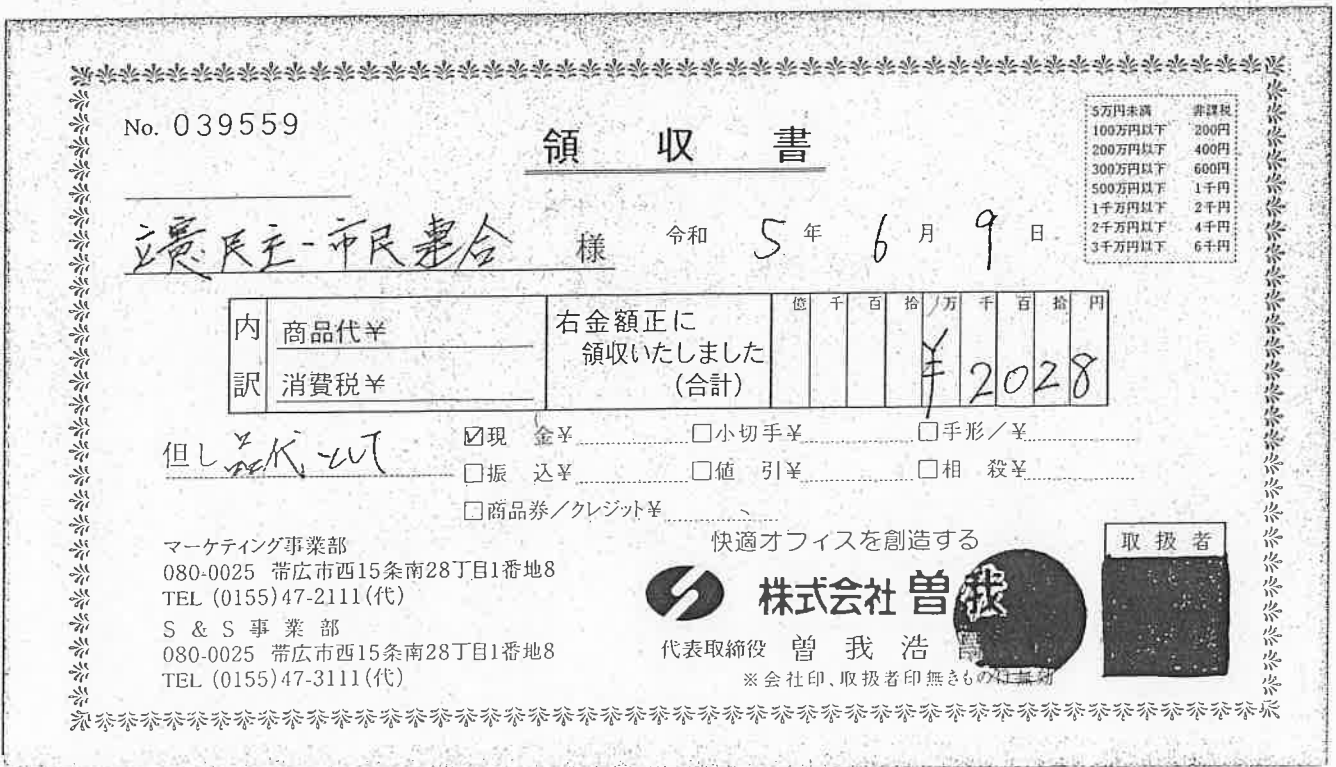 No. 039559
領収書
5万円未満 非課税
100万円以下 200円
200万円以下 400円
300万円以下 600円
500万円以下 1千円
1千万円以下 2千円
2千万円以下 4千円
3千万円以下 6千円
立憲民主-市民連合 様
令和 5 年 6 月 9 日
内訳
商品代¥
消費税¥
右金額正に
領収いたしました
(合計)
億 千 百 拾 万 千 百 拾 円
¥2028
但し 品代として
☑現 金¥ □小切手¥ □手形/¥
□振 込¥ □値 引¥ □相 殺¥
□商品券/クレジット¥
マーケティング事業部
080-0025 帯広市西15条南28丁目1番地8
TEL (0155)47-2111(代)
S & S 事業部
080-0025 帯広市西15条南28丁目1番地8
TEL (0155)47-3111(代)
快適オフィスを創造する
株式会社 曽我
代表取締役 曽我浩
※会社印、取扱者印無きもの
取扱者